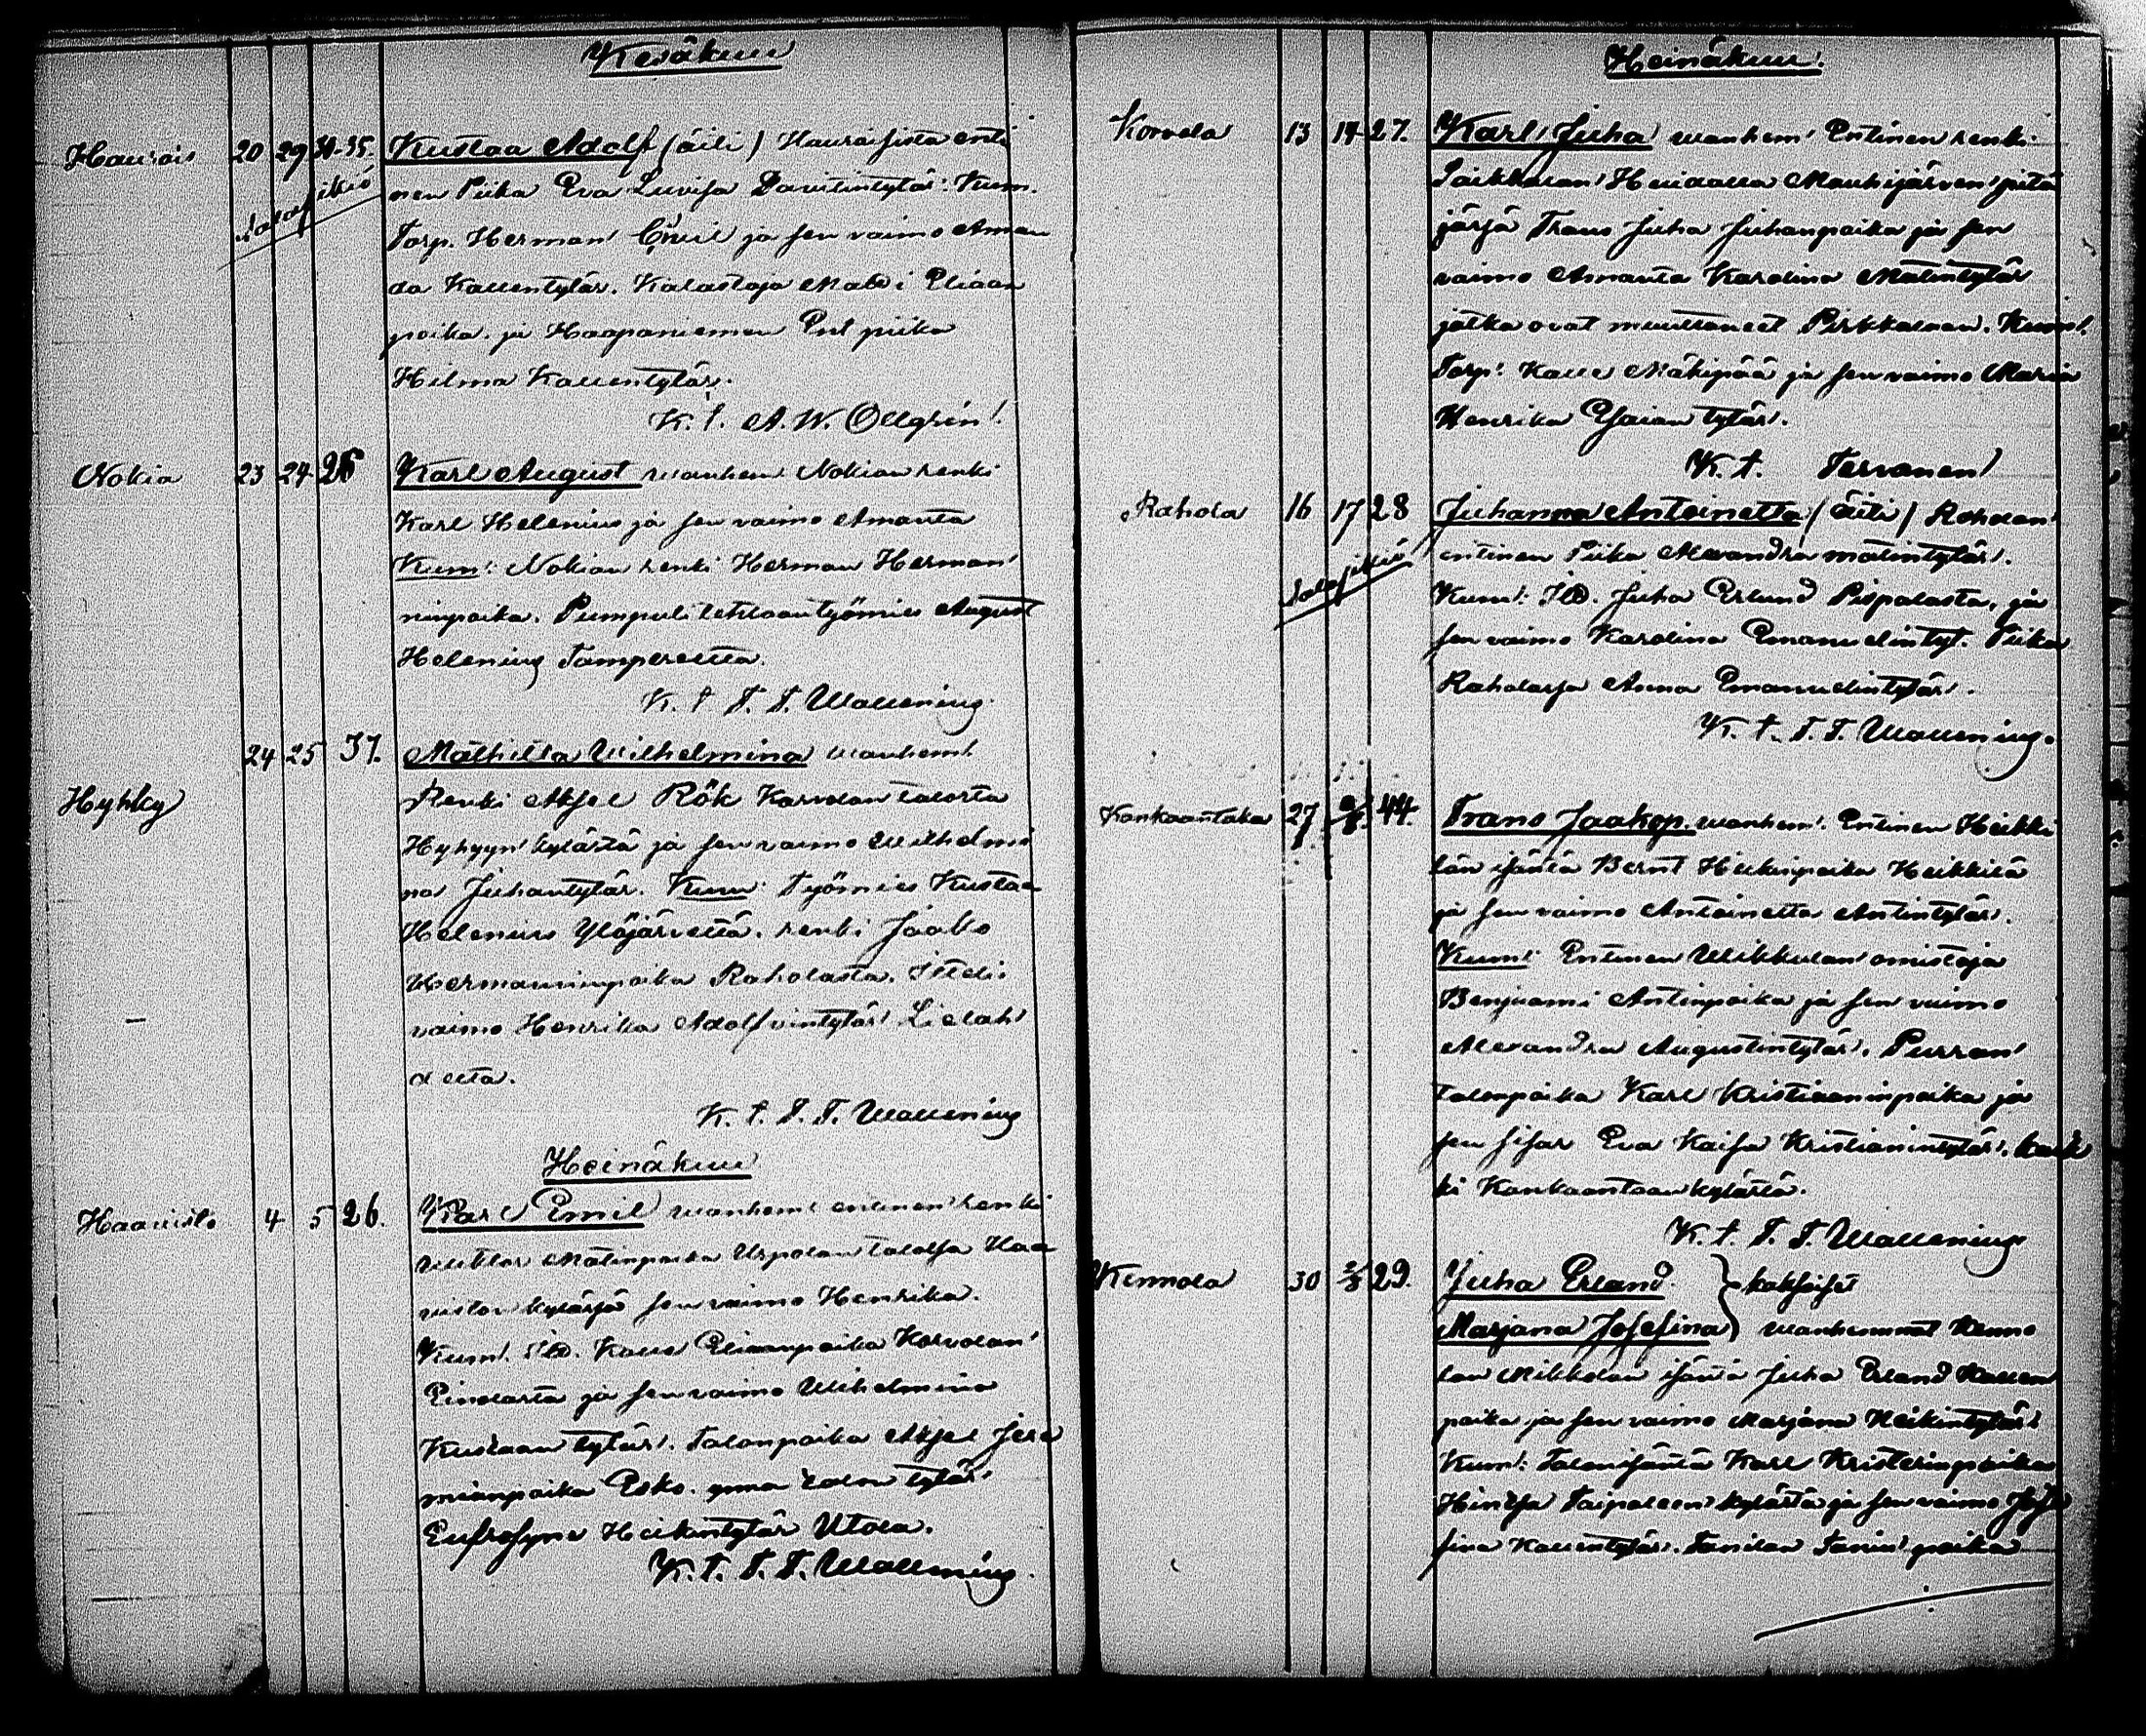 Kesäkuu
Haurais 20 29 34-35. Kustaa Adolf (äiti) Hauraisista enti
Salapikiö
nen Piika Eva Luvisa Davitintytär. Kum.
Torp. Herman Emil ja sen vaimo Aman
da Kallentytär. Kalastaja Matti Eliaan
poika. ja Haapaniemen Ent piika
Hilma Kallentytär.
K. t. A. W. Ollgrén.
Nokia 23 24 26 Karl August wanhem. Nokian renki
Karl Helenius ja sen vaimo Amanta
Kum: Nokian renki Herman Herman
ninpoika. Pumpuli tehtaan työmies August
Helenius Tampereelta.
K. t. F. F. Wallenius.
Hyhky 24 25 37. Mathilta Wilhelmina wanhem.
Renki Aksel Rök Karvolan talosta
Hyhyyn kylästä ja sen vaimo Wilhelmi
na Juhantytär. Kum. Työmies Kustaa
Helenius Ylöjärveltä. renki Jaakko
Hermanninpoika Raholasta. Itteli.
vaimo Henrika Adolfvintytär Lielah
delta.
K. t. F. F. Wallenius
Heinäkuu
Haavisto 4 5 26. Karl Emil wanhem. entinen renki
Wiktor Matinpoika Uspolan talossa Haa
viston kylässä sen vaimo Henrika.
Kum. Itt. Kalle Eliaanpoika Korvolan
Einolasta ja sen vaimo Wilhelmina
Kustaantytär. Talonpoika Aksel Jere
mianpoika Esko. ynnä talon tytär
Eufrosyne Heikintytär Utola.
K. t. F. F. Wallenius.
Heinäkuu.
Korvola 13 14 27. Karl Juha wanhem. Entinen renki
Paikkalan Heidalla Mauhijärven pitä
jässä Frans Juha Juhanpoika ja sen
vaimo Amanta Karolina Matintytär
jotka ovat muuttaneet Pirkkalaan. Kum.
Torp. Kalle Mäkipää ja sen vaimo Maria
Henrika Esaiantytär.
K. t. Tervanen
Rahola 16 17 28 Juhanna Antoinetta (äiti) Raholan
Salapikiö
entinen Piika Alexandra Matintytär.
Kum: Itt. Juha Erlund Pispalasta, ja
sen vaimo Karolina Emanuelintyt. Piika
Raholassa Anna Emanuelintytär.
K. t. F. F. Wallenius.
Kankaantaka 27 2/8 44. Frans Jaakop. wanhem. Entinen Heikki
län isäntä Bernt Heikinpoika Heikkilä
ja sen vaimo Antoinetta Antintytär.
Kum: Entinen Wikkulan omistaja
Benjaami Antinpoika ja sen vaimo
Alexandra Augustintytär. Purran
talonpoika Karl Kristianinpoika ja
sen sisar Eva Kaisa Kristianintytär. kaik
ki Kankaantaan kylästä.
K. t. F. F. Wallenius
Kennola 30 2/8 29. Juha Erland } kaksoiset
Marjana Josefina } wanhemmat Kenno
lan Mikkolan isäntä Juha Erland Kallen
poika ja sen vaimo Marjana Heikintytär
Kum: Talonisäntä Karl Kristerinpoika
Hintsa Taipaleen kylästä ja sen vaimo Jose
fina Kallentytär. Tanilan Tanin poika